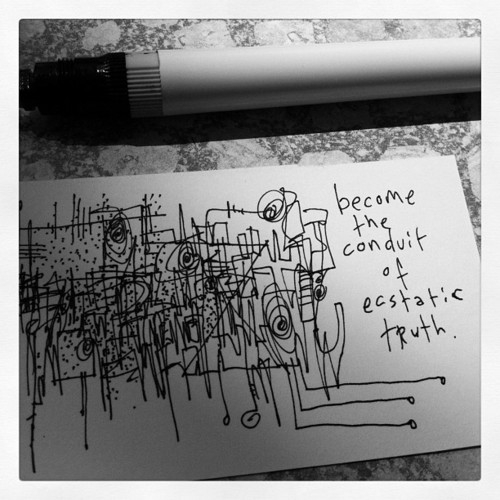 become
the
conduit
of
ecstatic
truth.